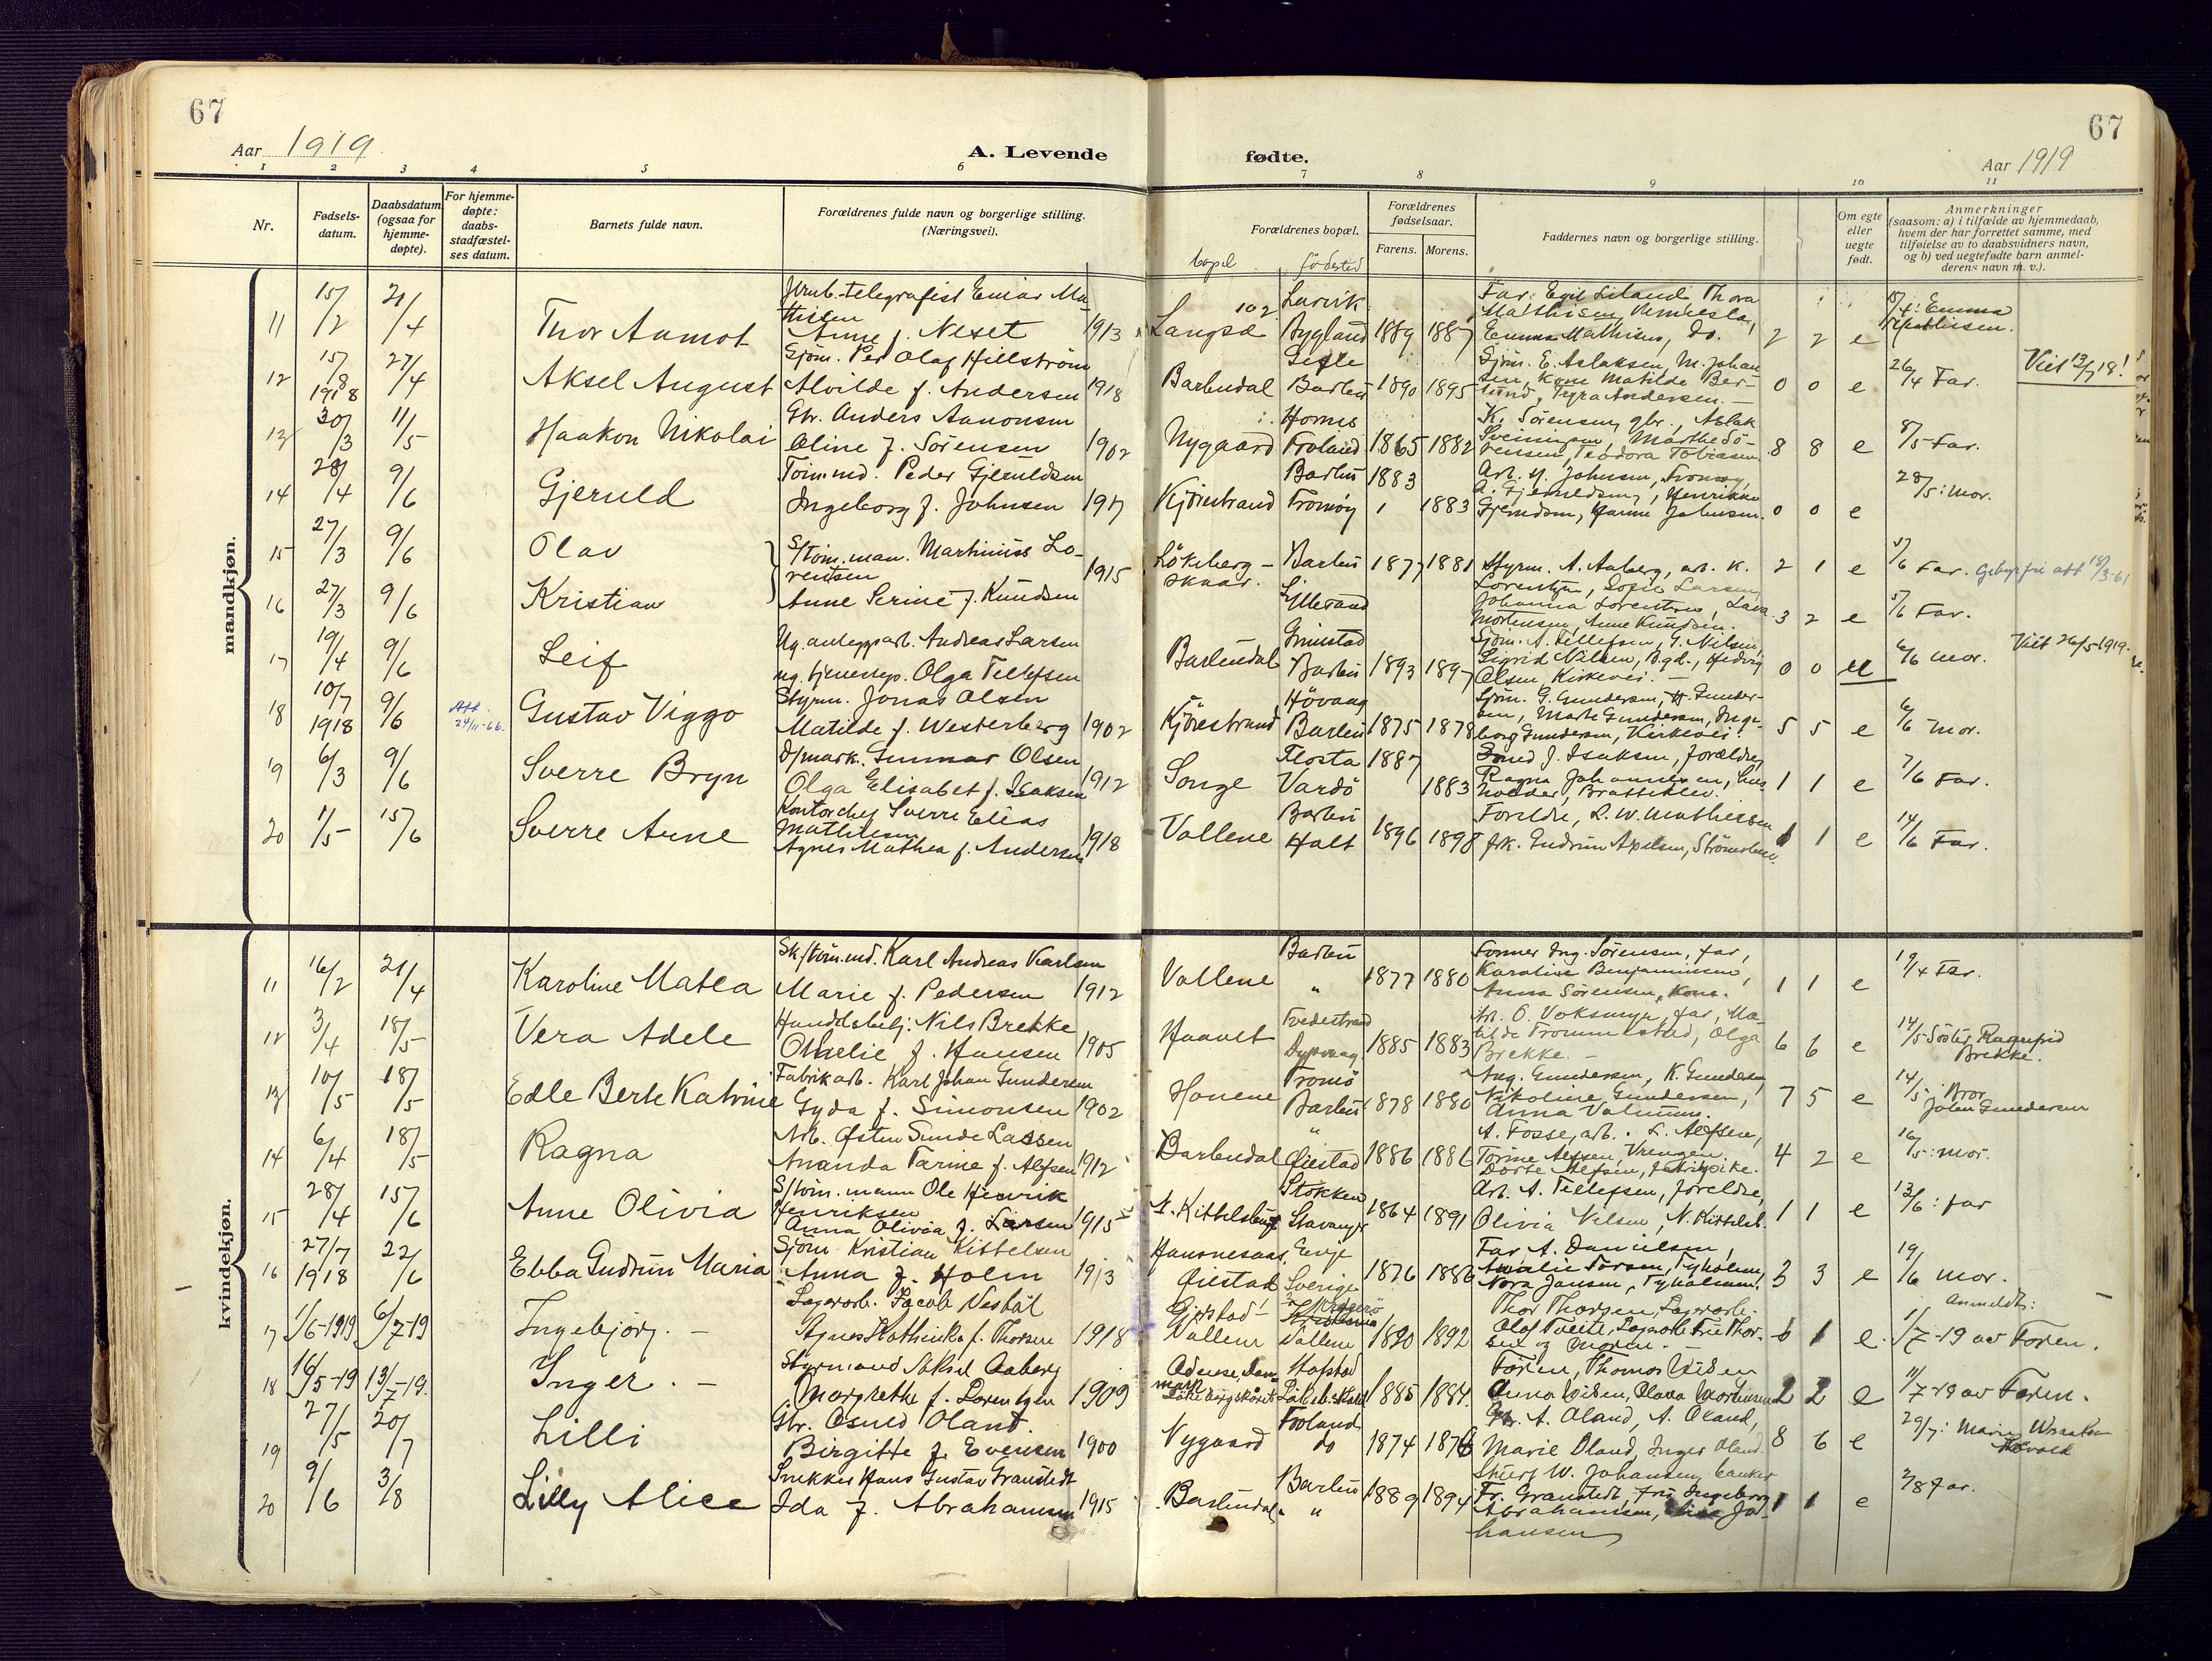 67
67
Aar 1919
A. Levende
fødte.
Aar 1919
1 2 3 4 5 6 7 8 9 10 11
Nr.
Fødsels-
datum.
Daabsdatum
(ogsaa for
hjemme-
døpte).
For hjemme-
døpte:
daabs-
stadfæstel-
ses datum.
Barnets fulde navn.
Forældrenes fulde navn og borgerlige stilling.
(Næringsvei).
Forældrenes bopæl.
bopel fødested
Forældrenes
fødselsaar.
Farens. Morens.
Faddernes navn og borgerlige stilling.
Om egte
eller
uegte
født.
Anmerkninger
(saasom: a) i tilfælde av hjemmedaab,
hvem der har forrettet samme, med
tilføielse av to daabsvidners navn,
og b) ved uegtefødte barn anmel-
derens navn m. v.).
mandkjøn.
11 15/2 21/4 Thor Aamot
Jernb.-telegrafist Einar Ma-
thisen
Anne f. Neset 1913
Langsæ 102 Larvik
Bygland 1889 1887
Far: Egil Liland, Thora
Mathisen,
Emma Mathisen, do. 2 2 e
15/4: Emma
Mathisen.
12 15/8 1918 27/4 Aksel August
Sjøm. Per Olaf Hillström
Alvilde f. Andersen 1918
Barbudal Gefle
Barbu 1890 1895
Sjøm. E. Aslaksen, M. Johan-
sen, Kone Matilde Ber-
lund, Tyra Andersen. 0 0 e
26/4 Far. Viet 13/7 18!
13 30/3 11/5 Haakon Nikolai
Gbr. Anders Aanonsen
Oline f. Sørensen 1902
Nygaard Hornes
Froland 1865 1882
K. Sørensen, gbr., Aslak
Svenningsen, Marthe Sø-
rensen, Teodora Tobiasen. 8 8 e
8/5 Far.
14 28/4 9/6 Gjeruld
Tømmd. Peder Gjeruldsen
Ingeborg f. Johnsen 1917
Kjørrestrand Barbu 1883
Tromøy 1883
Arb. H. Johnsen, Tromøy,
A. Gjeruldsen, Henrikke
Gjeruldsen, Hanne Johnsen. 0 0 e
28/5: Mor.
15 27/3 9/6 Olav
S/tøm.man. Martinius Lo-
rentsen 1915
Løkeberg-
skaar. Barbu 1877 1881
Styrm. A. Aaberg, arb. K. 2 1 e
5/6 Far. Gebyrfri att 18/3-61
16 27/3 9/6 Kristian
Anne Serine f. Knudsen
Lillesand
Lorentzen, Sofie Larsen
Johanna Lorentzen, Lava
Mortensen, Anne Knudsen. 3 2 e
5/6 Far.
17 19/4 9/6 Leif
Ug. anleggsarb. Andreas Larsen
ug. tjenestep. Olga Tellefsen
Barbudal Grimstad
Barbu 1893 1897
Sjøm. A. Tellefsen, G. Nilsen,
Sigrid Nilsen, Bgd., Hedvig
Olsen, Kirkevei. 0 0 u
6/6 Mor. Viet 26/5-1919.
18 10/7 1918 9/6 Att. 24/11-66. Gustav Viggo
Styrm. Jonas Olsen
Matilde f. Westerberg 1902
Kjørrestrand Høvaag
Barbu 1875 1878
Sjøm. G. Gundersen, H. Gunder-
sen, Marte Gundersen, Inge-
borg Gundersen, Kirkevei. 5 5 e
6/6 Mor.
19 6/3 9/6 Sverre Bryn
D/mask. Gunnar Olsen
Olga Elisabet f. Isaksen 1912
Songe Flosta 1887
Vardø 1883
Smed J. Isaksen, forældre,
Ragna Johannesen, hus-
holder, Brattekleiv. 1 1 e
7/6 Far.
20 1/5 15/6 Sverre Arne
Kontorchef Sverre Elias
Mathiesen
Agnes Mathea f. Andersen 1918
Vallene Barbu
Holt 1896 1898
Foreldre, L. W. Mathiesen
frk. Gudrun Axelsen, Strømsbu. 1 1 e
14/6 Far.
kvindekjøn.
11 16/2 21/4 Karoline Matea
Sk/tøm.md. Karl Andreas Karlsen
Marie f. Pedersen 1912
Vallene Barbu
" 1877 1880
Former Ing. Sørensen, far,
Karoline Benjaminsen,
Anna Sørensen, Kone. 1 1 e
19/4 Far.
12 3/4 18/5 Vera Adele
Handelsbetj. Nils Brekke
Omelie f. Hansen 1905
Haavet Tvedestrand
Dypvaag 1885 1883
Fr. O. Voksmyr, far, Ma-
tilde Trommestad, Olga
Brekke. 6 6 e
14/5 Søster Ragnfrid
Brekke.
13 10/5 18/5 Edle Berte Katrine
Fabrikarb. Karl Johan Gundersen
Gyda f. Simonsen 1902
Honene Tromø
Barbu 1878 1880
Aug. Gundersen, K. Gundersen
Nikoline Gundersen,
Anna 7 5 e
14/5 Bror
Johan Gundersen
14 6/4 18/5 Ragna
Arb. Østen Sunde Lassen
Ananda Tarine f. Alfsen 1912
Barbudal "
Øiestad 1886 1886
A. Fosse, arb. L. Alfsen,
Torine Alfsen, Vrengen,
Dorte Alfsen, fabrikpike. 4 2 e
16/5: Mor.
15 28/4 15/6 Anne Olivia
S/tøm.mann Ole Henrik
Henriksen
Anna Olivia f. Larsen 1915
N. Kittelsbugt Stokken
Stavanger 1864 1891
Arb. A. Tellefsen, foreldre,
Olivia Nilsen, N. Kittelsb. 1 1 e
13/6: far
16 27/7 1918 22/6 Ebba Gudrun Maria
Sjøm. Kristian Kittelsen
Anna f. Holm 1913
Hausnesaas, Evje
Øiestad Sverige 1876 1886
Far A. Danielsen,
Amalie Larsen, Tyholmen,
Nora Jansen, Tyholmen. 3 3 e
19/6 Mor.
17 1/6-1919 6/7-19 Ingebjørg. –
Lagerarb. Jacob Nesbål
Agnes Kathinka f. Thorsen 1918
Gjerstad
Vallene Kragerø
Vallene 1890 1892
Thor Thorsen, Lagerarb.
Olaf Tveite, Lagerarb. Fru Thor-
sen og Moren. – 1 e.
Anmeldt:
1/7-19 av Faren.
18 16/5-19 13/7-19. Inger. –
Styrmand Aksel Aaberg
Margrethe f. Lorentzen 1909
Odense, Dan-
mark
Løkebergskåret Hafstad
1885 1884.
Faren, Thomas Widen
Anna Widen, Olava Mortensen 2 2 e
11/7-19 av Faren.
19 27/5 20/7 Lilli
Gbr. Osuld Oland.
Birgitte f. Evensen 1900
Nygaard Froland
do 1874 1876
Gbr. A. Oland, A. Oland,
Marie Oland, Inger Oland. 8 6 e
29/7: Marie
20 9/6 3/8 Lilly Alice
Snekker Hans Gustav Granstedt
Ida f. Abrahamsen 1915
Barbudal. Barbu
" 1889 1894
Stuert W. Johansen,
Fr. Granstedt, fru Ingeborg
Abrahamsen, Alice Jo-
hansen 1 1 e
2/8 Far.